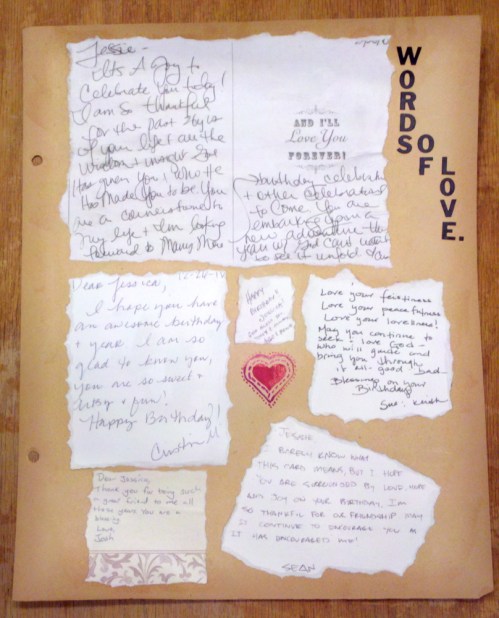 WORDS OF LOVE.
Jessie -
Its A Joy to
Celebrate You today!
I am so thankful
for the past
of your life & all the
wisdom & insight God
Has given you! Who He
Has Made You to be. You
are a cornerstone in
My life & I'm looking
forward to Many More
AND I'LL
Love You
FOREVER!
birthday celebrations
& other celebrations
to come. You are
embarking upon a
new adventure this
year & I can't wait
to see it unfold.
Dear Jessica,
12-26-12
I hope you have
an awesome birthday
& year. I am so
glad to know you,
you are so sweet &
& fun!
Happy Birthday!
HAPPY
BIRTHDAY!
Love your feistiness
Love your peacefulness
Love your loveliness!
May you continue to
seek & love God -
who will guide and
bring you through
it all - good & bad.
Blessings on your
Birthday
Sue & Keith
Dear Jessica,
Thank you for being such
a great friend to me all
these years. You are a
blessing
Love,
Josh
JESSIE
I BARELY KNOW WHAT
THIS CARD MEANS, BUT I HOPE
YOU ARE SURROUNDED BY LOVE, HOPE
AND JOY ON YOUR BIRTHDAY. I'M
SO THANKFUL FOR OUR FRIENDSHIP. MAY
IT CONTINUE TO ENCOURAGE YOU AS
IT HAS ENCOURAGED ME!
SEAN